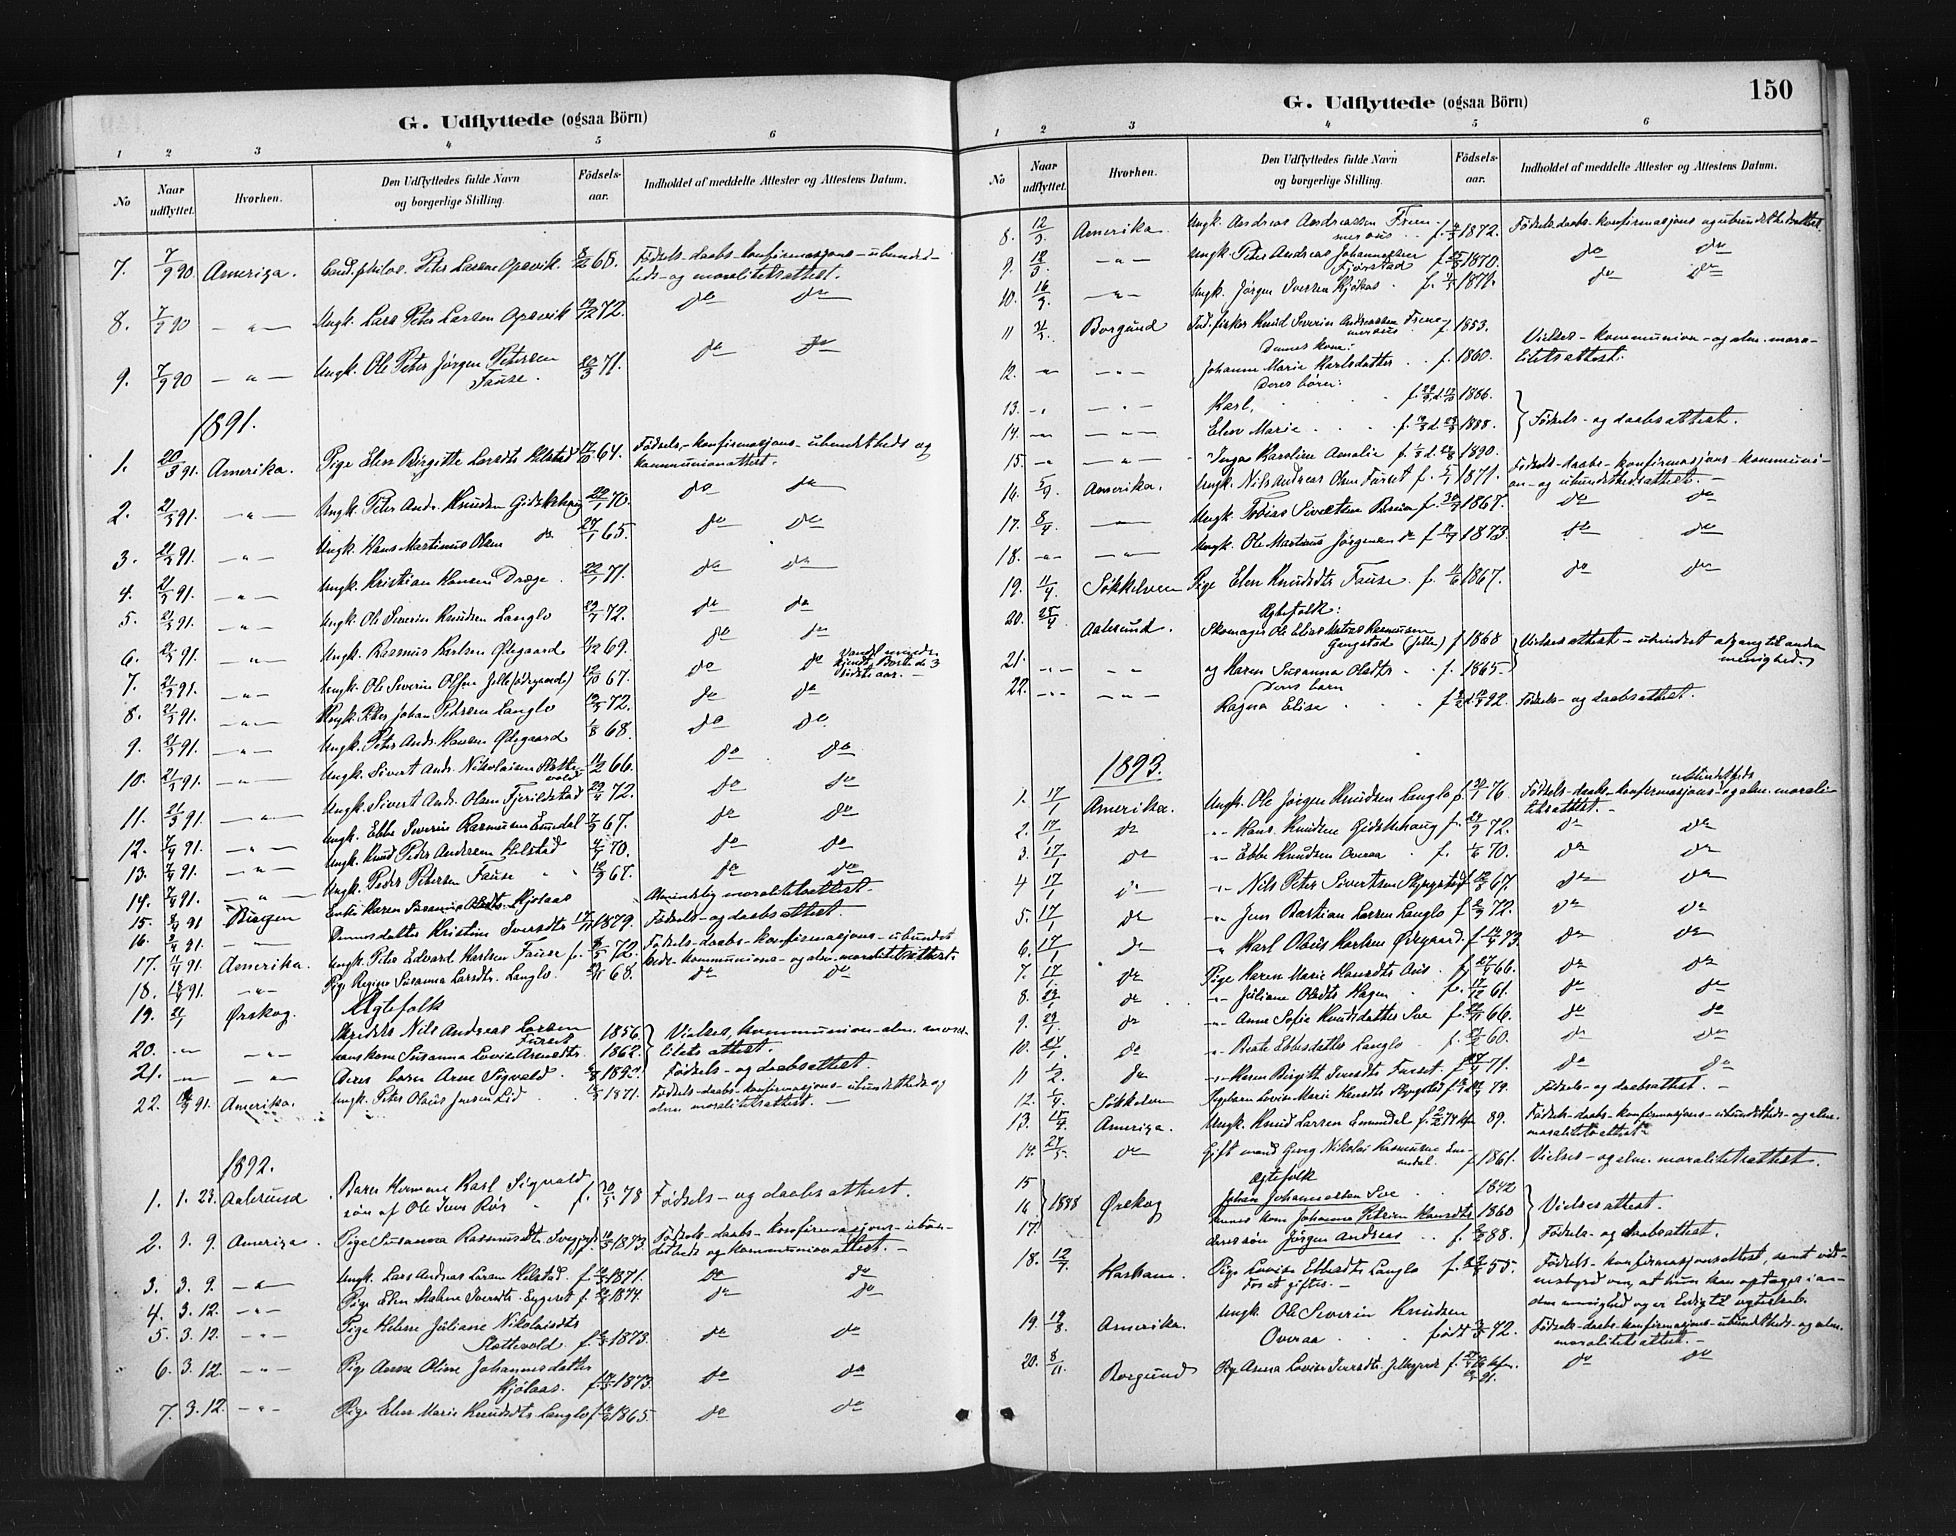 G. Udflyttede (ogsaa Börn)
1 2 3 4 5 6
No Naar udflyttet. Hvorhen. Den Udflyttedes fulde Navn og borgerlige Stilling. Födsels-aar. Indholdet af meddelte Attester og Attestens Datum.
7. 7/9 90 Ameriga. Cand. philos. Peter Larsen Opsvik 65. Födsels-daabs-konfirmasjons-ubunded-
heds- og moralitetsattest.
8. 7/9 90 — " — Ungk. Lars Peter Larsen Opsvik 72. do do
9. 7/9 90 — " — Ungk. Ole Peter Jørgen Petersen
Fause. 20/3 71. do do
1891.
1. 20/3 91. Amerika. Pige Elen Birgitte Larsdtr Helstad 64. Födsels-konfirmasjons-ubundetheds og
kommunionattest.
2. 21/3 91. — " — Ungk. Peter Andr. Knudsen Gidskehaug 22/1 70. do do
3. 21/3 91. — " — Ungk. Hans Martinus Olsen do 27/1 65. do do
4. 21/3 91. — " — Ungk. Kristian Hansen Drage. 22/1 71. do do
5. 21/3 91. — " — Ungk. Ole Severin Knudsen Langlo 72. do do
6. 21/3 91. — " — Ungk. Rasmus Karlsen Ødegaard 69. do do
7. 21/3 91. — " — Ungk. Ole Severin Olsen (ødegaard) 67. do do
sidste aar.
8. 21/3 91. — " — Ungk. Peter Johan Petersen Langlo 72. do do
9. 21/3 91. — " — Ungk. Peter Andr. Hansen Ødegaard 68. do do
10. 21/3 91. — " — Ungk. Sivert Andr. Nikolaisen Slotte-
vold 66. do do
11. 21/3 91. — " — Ungk. Sivert Andr. Olsen Fjerildstad 72. do do
12. 7/4 91. — " — Ungk. Ebbe Severin Rasmussen Emdal 67. do do
13. 7/4 91. — " — Ungk. Knud Peder Andersen Helstad 70. do do
14. 7/4 91. — " — Ungk. Peder Petersen Fause 67. do do
15. 8/4 91 Bergen Enke Karen Susanna Oledtr. Hjolaas Almindelig moralitetsattest.
16. 91. — " — Dennes datter Kristine Sivertsdtr 1879. Födsels- og daabsattest.
17. 11/4 91. Amerika. Ungk. Peter Edvard Karlsen Fause f. 72. Födsels-daabs-konfirmasjons-ubundet-
heds-kommunions- og alm. moralitetsattest.
18. 91. — " — Pige Regine Susanna Larsdtr. Langlo. 68. do do
Ægtefolk
19. 21/1 Ørskog. Skrædder Nils Andreas Larsen
Furset 1856. Vielses, kommunion-alm. moral-
litets attest.
20. — " — — " — hans kone Susanna Lovise 1862.
21. — " — — " — deres barn Arne Sigvald. 1890. Födsels- og daabsattest.
22. 91. Amerika. Ungk. Peter Olaus Jensen Lid 1871. Födsels-daabs-konfirmasjons-ubundetheds og
alm. moralitetsattest. —
1892.
1. 1. 23. Aalesund Karl Sigvald
søn af Ole Jens Rör f. 78 Födsels- og daabsattest.
2. 3. 9. Ameriga. Pige Susanna Rasmusdtr. 1873. Födsels-daabs-konfirmasjons-ubun-
detheds og kommunionattest. —
3. 3. 9. — " — Ungk. Lars Andreas Larsen Helstad. f. 1871. do do
4. 3. 12. — " — Pige Elen f. 1874. do do
5. 3. 12. — " — Pige Helene Juliane Nikolaisdtr
Slottevold. f. 1873. do do
6. 3. 12. — " — Pige Anne Oline Johannesdatter
Hjolaas. f. 1873. do do
7. 3. 12. — " — Pige Elen Marie Knudsdtr Langlo f. 1865. do do
150
G. Udflyttede (ogsaa Börn)
1 2 3 4 5 6
No Naar udflyttet. Hvorhen. Den Udflyttedes fulde Navn og borgerlige Stilling. Födsels-aar. Indholdet af meddelte Attester og Attestens Datum.
8. 12/3. Amerika. Ungk. Andreas Andreassen Frem-
mersus f. 1872. Födsels-daabs-konfirmasjons og ubundethedsattest.
9. 12/3. — " — Ungk. Peter Andreas Johannessen
Fjørstad f. 1870. do do
10. 16/3. — " — Ungk. Jørgen Iversen Hjolaas. f. 1872. do do
11 Borgund Knud Severin Andreassen Frem-
mersus f. 1853. Vielses-kommunion- og alm. mora-
litetsattest.
Dennes kone:
12. — " — — " — Johanne Marie Karlsdatter. f. 1860.
Deres børn:
13. — " — — " — Karl, f. 1886.
14. — " — — " — Elen Marie f. 1888. Födsels- og daabsattest.
15. — " — — " — Inga Karoline Amalie f. 1890.
16. 5/9. Amerika. Ungk. Nils Andreas Olsen Furset f. 1871. Födsels-daabs-konfirmasjons-kommuni-
on- og ubundethedsattest. —
17. 8/4 — " — Ungk. Tobias Sivertsen f. 1867. do do
18. — " — — " — Ungk. Ole Martinus Jørgensen do f. 1873. do do
19. 11/4 Søkkelven Pige Elen Knudsdtr Fause. f. 1867. do do
Ægtefolk:
20. 25/4 Aalesund. Skomager Ole Elias Matias Rasmussen
f. 1868 Vielsesattest - uhindret afgang til anden
menighed.
21. — " — — " — og Karen Susanna Oledtr. f. 1865.
Deres barn
22. — " — — " — Ragna Elise f. 92. Födsels- og daabsattest.
1893.
1. 17/1 Amerika. Ungk. Ole Jørgen Knudsen Langlo f. 76. Födsels-daabs-konfirmasjons- ubundetheds og alm. morali-
tetsattest. —
2. 17/1 do " Hans Knudsen Gidskehaug f. 72. do do
3. 17/1 do " Ebbe Knudsen Overaa f. 70. do do
4 17/1 do " Nils Peter Sivertsen f. 67. do do
5. 17/1 do " Jens Bastian Larsen Langlo f. 72. do do
6. 17/1 do " Karl Olaus Karlsen Ødegaard f. 73. do do
7. 17/1. do Pige Karen Marie Hansdtr Aas f. 66. do do
8. 23/1 do " Juliane Oledtr Hagen f. 61. do do
9. 23/1 do " Anne Sofie Knudsdatter Soe f. 66. do do
10. 24/1. do " Beate Ebbesdatter Langlo f. 60. do do
11 do " Karen Birgitte Furset f. 71. do do
12. Søkkelven Lovise Marie f. 79. Födsels- og daabsattest. —
13. Ameriga. Ungk. Knud Larsen Emdal f. 74 kfm. 89. Födsels-daabs-konfirmasjons-ubundetheds- og alm.
moralitetsattest
14. 24/5. do Gift mand Georg Nikolai Rasmussen Em-
dal. f. 1861. Vielses- og alm. moralitetsattest.
Ægtefolk
15 1888 Ørskog Johan Johannessen Soe 1842 Vielsesattest.
16 dennes kone Johanne Petrine Hansdtr 1860
17. deres søn Jørgen Andreas f. 88. Födsels- og daabsattest.
18. 12/7. Haskam. Pige Lovise Ebbesdtr Langlo f. 55. Födsels-konfirmasjonsattest, samt vid-
for at giftes. — nesbyrd om, at hun kan optages i an-
den menighed og er ledig til ægteskab.
19. 19/8 Amerika. Ungk. Ole Severin Knudsen
Overaa født 72. Födsels-daabs-konfirmasjons-ubundetheds- og alm.
moralitetsattest. —
20. 8/11. Borgund Pige Anna Lovise Iversdtr. f. 76 kfm.
91. do do